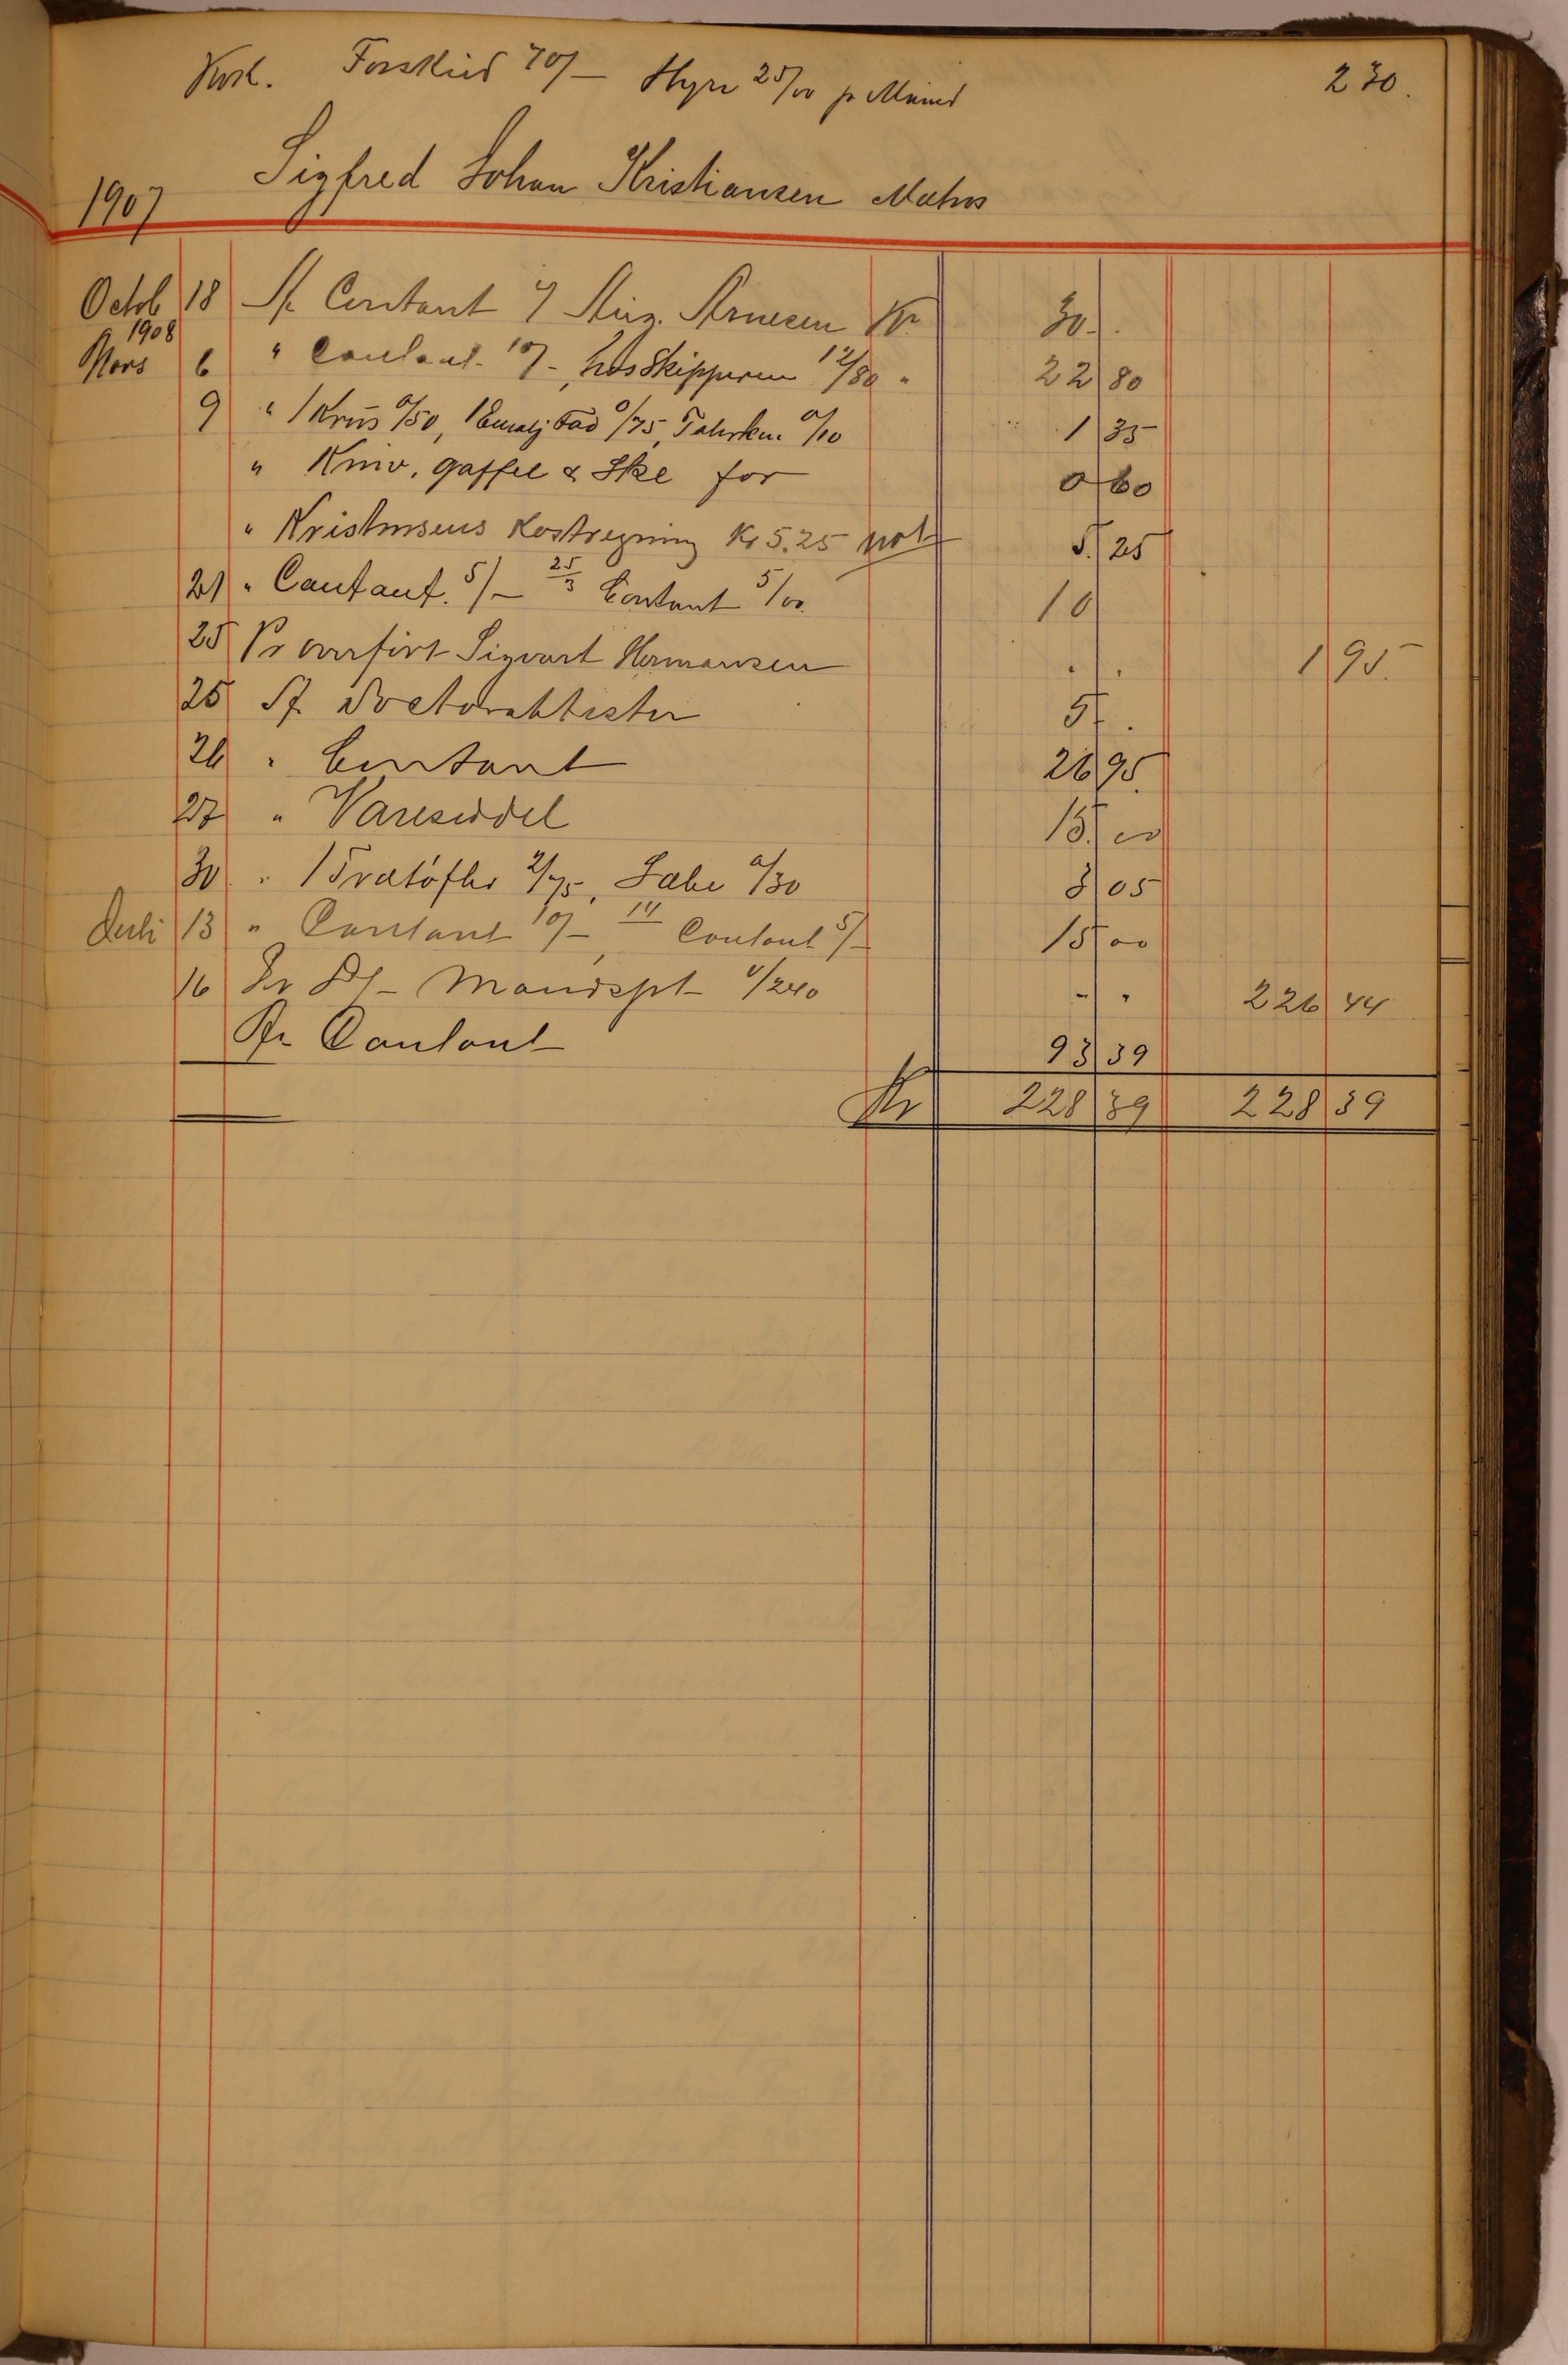 Forskud 70/- Hyre 25/00 pr Maaned 230.
1907 Sigfred Johan Kristiansen Matros
Octob 18 Contant Aug. Arnesen Kr 30. .
1908
Mars 6 " Contant 10/-, hos Skipperen 12/80 " 22 80
9 " 1 Krus 0/50, 1 Emalj Fad 0/75, 0/10 1 35
" Kniv, gaffel & Ske for 0 60
" Kristinsens Kostregning Kr 5.25 5. 25
21 " Contant. 5/- 25/3 Contant 5/00. 10
25 Pr overført Sigvart Hermansen . . 1 95.
25 5 .
26 " Contant 26 95.
27 " Vareseddel 15. 00
30 " 1 Trætøfler 2/75, Sæbe 0/30 3 05
Juli 13 " Contant 10/-, 14 Contant 5/- 15 00
16 - " 226 44
Contant 93 39
Kr 228 39 228 39